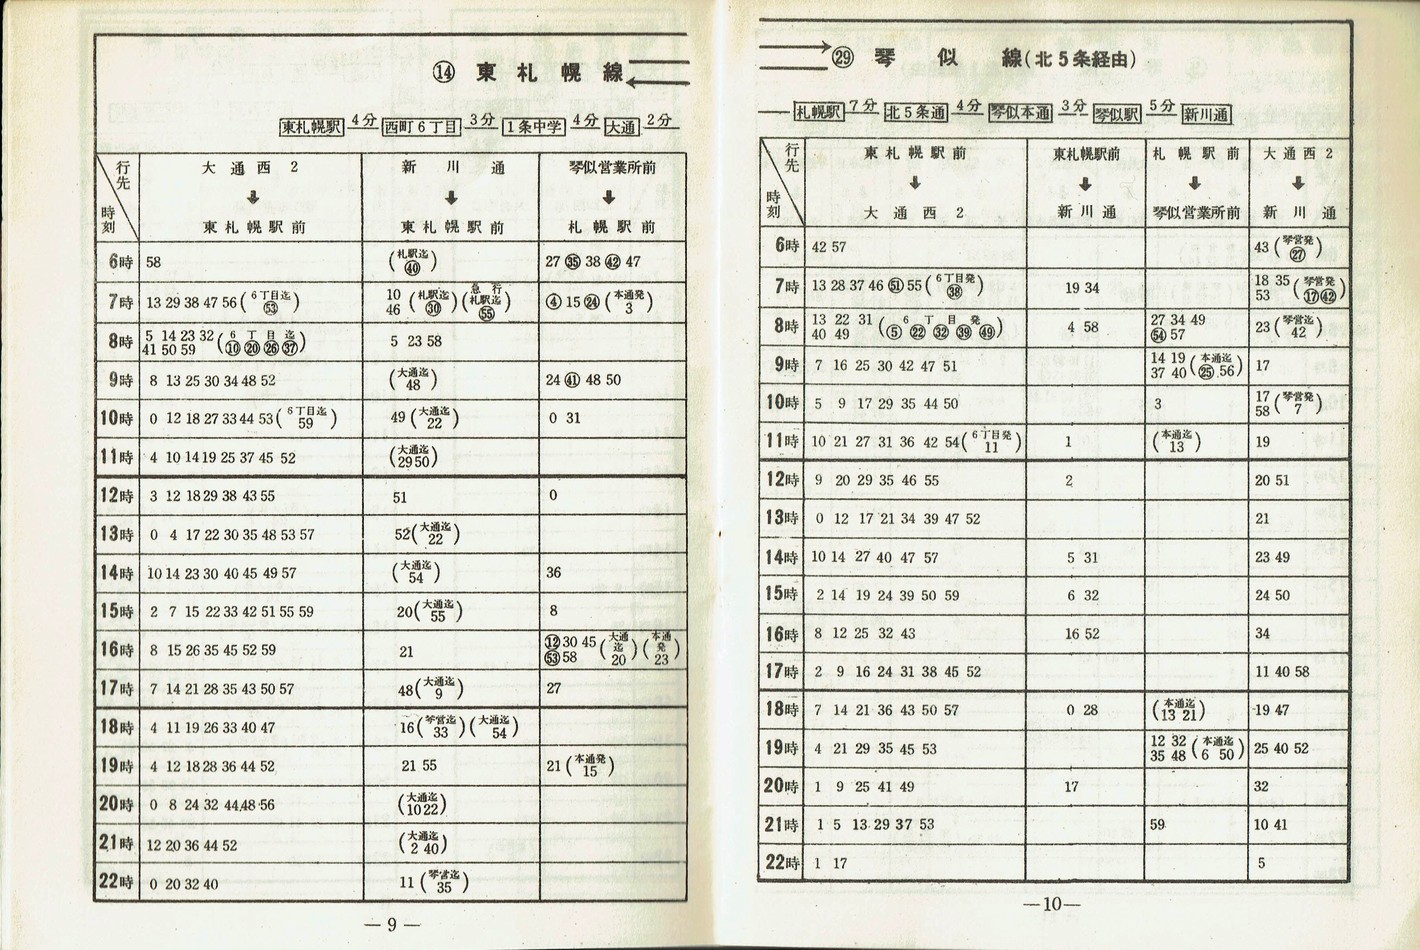 ⑭ 東札幌線
東札幌駅 4分 西町6丁目 3分 1条中学 4分 大通 2分
行先 時刻 大通西2 新川通 琴似営業所前
東札幌駅前 東札幌駅前 札幌駅前
6時 58 (札駅迄 ㊵) 27 ㉟ 38 ㊷ 47
7時 13 29 38 47 56 (6丁目迄 53) 10 46 (札駅迄 ㉚) (急行 札駅迄 55) ④ 15 ㉔ (本通発 3)
8時 5 14 23 32 41 50 59 (6丁目迄 ⑩ ⑳ ㉖ ㊲) 5 23 58
9時 8 13 25 30 34 48 52 (大通迄 48) 24 ㊶ 48 50
10時 0 12 18 27 33 44 53 (6丁目迄 59) 49 (大通迄 22) 0 31
11時 4 10 14 19 25 37 45 52 (大通迄 29 50)
12時 3 12 18 29 38 43 55 51 0
13時 0 4 17 22 30 35 48 53 57 52 (大通迄 22)
14時 10 14 23 30 40 45 49 57 (大通迄 54) 36
15時 2 7 15 22 33 42 51 55 59 20 (大通迄 55) 8
16時 8 15 26 35 45 52 59 21 ⑫ 30 45 53 58 (大通迄 20) (本通発 23)
17時 7 14 21 28 35 43 50 57 48 (大通迄 9) 27
18時 4 11 19 26 33 40 47 16 (琴営迄 33) (大通迄 54)
19時 4 12 18 28 36 44 52 21 55 21 (本通発 15)
20時 0 8 24 32 44 48 56 (大通迄 10 22)
21時 12 20 36 44 52 (大通迄 2 40)
22時 0 20 32 40 11 (琴営迄 35)
—9—
㉙ 琴似線(北5条経由)
札幌駅 7分 北5条通 4分 琴似本通 3分 琴似駅 5分 新川通
行先 時刻 東札幌駅前 東札幌駅前 札幌駅前 大通西2
大通西2 新川通 琴似営業所前 新川通
6時 42 57 43 (琴営発 ㉗)
7時 13 28 37 46 51 55 (6丁目発 ㊳) 19 34 18 35 53 (琴営発 ⑰ ㊷)
8時 13 22 31 40 49 (6丁目発 ⑤ ㉒ ㉜ ㊴ ㊾) 4 58 27 34 49 54 57 23 (琴営迄 42)
9時 7 16 25 30 42 47 51 14 19 37 40 (本通迄 ㉕ 56) 17
10時 5 9 17 29 35 44 50 3 17 58 (琴営発 7)
11時 10 21 27 31 36 42 54 (6丁目発 11) 1 (本通迄 13) 19
12時 9 20 29 35 46 55 2 20 51
13時 0 12 17 21 34 39 47 52 21
14時 10 14 27 40 47 57 5 31 23 49
15時 2 14 19 24 39 50 59 6 32 24 50
16時 8 12 25 32 43 16 52 34
17時 2 9 16 24 31 38 45 52 11 40 58
18時 7 14 21 36 43 50 57 0 28 (本通迄 13 21) 19 47
19時 4 21 29 35 45 53 12 32 35 48 (本通迄 6 50) 25 40 52
20時 1 9 25 41 49 17 32
21時 1 5 13 29 37 53 59 10 41
22時 1 17 5
—10—